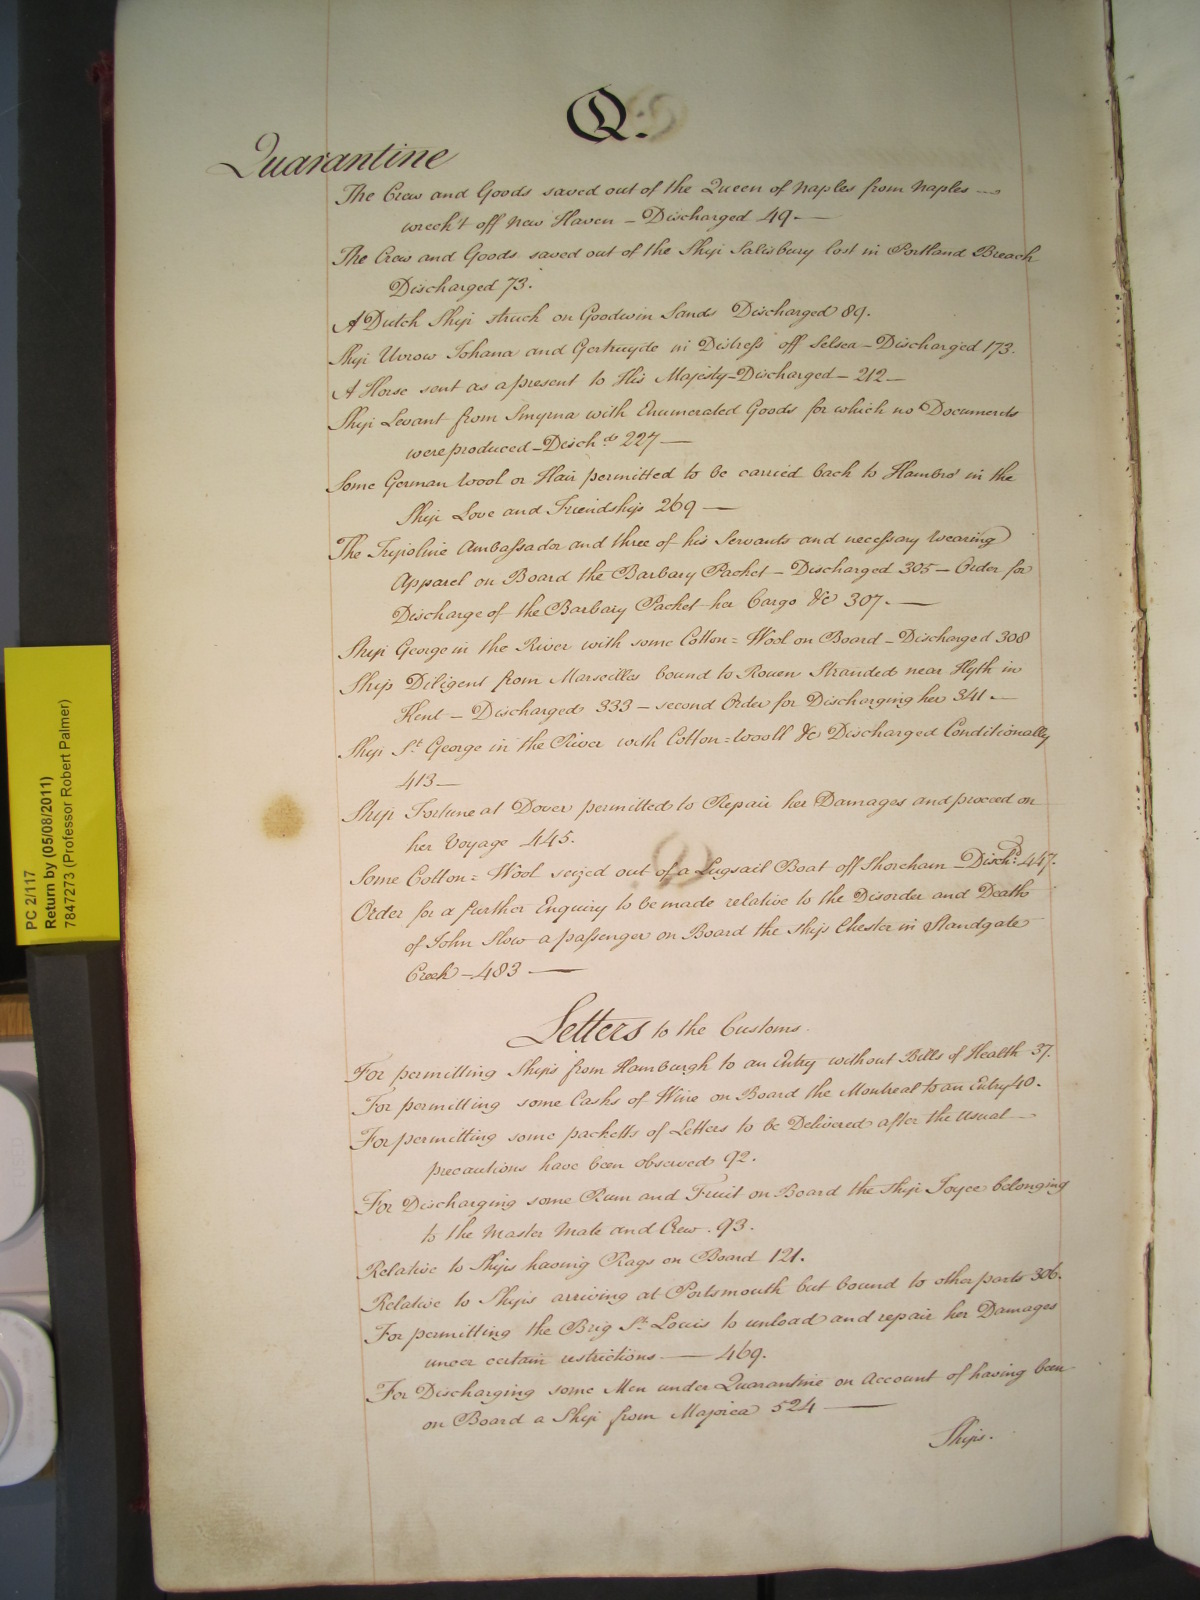 Q.
Quarantine
The Crew and Goods saved out of the Queen of Naples from Naples
wreck't off New Haven – Discharged 49. —
The Crew and Goods saved out of the Ship Salisbury lost in Portland Breach
Discharged 73.
A Dutch Ship struck on Goodwin Sands Discharged 89.
Ship Uvrow Johana and Gertruyde in Distress off Selsea – Discharged 173.
A Horse sent as a present to His Majesty – Discharged – 212 —
Ship Levant from Smyrna with Enumerated Goods for which no Documents
were produced – Disch.d 227 —
Some German Wool or Hair permitted to be carried back to Hambro' in the
Ship Love and Friendship 269 —
The Tripoline Ambassador and three of his Servants and necessary Wearing
Apparel on Board the Barbary Packet – Discharged 305 – Order for
Discharge of the Barbary Packet her Cargo &c 307. —
Ship George in the River with some Cotton = Wool on Board – Discharged 308
Ship Diligent from Marseilles bound to Rouen Stranded near Hyth in
Kent – Discharged 333 – second Order for Discharging her 341 —
Ship St. George in the River with Cotton = Wooll &c Discharged Conditionally
413 —
Ship Fortune at Dover permitted to Repair her Damages and proceed on
her Voyage 445.
Some Cotton = Wool seized out of a Lugsail Boat off Shoreham – Disch.d 447.
Order for a further Enquiry to be made relative to the Disorder and Death
of John Slow a passenger on Board the Ship Chester in Standgate
Creek – 483 —
Letters to the Customs.
For permitting Ships from Hamburgh to an Entry without Bills of Health 37.
For permitting some Casks of Wine on Board the Montreal to an Entry 40.
For permitting some packetts of Letters to be Delivered after the usual
precautions have been observed 92.
For Discharging some Rum and Fruit on Board the Ship Joyce belonging
to the Master Mate and Crew. 93.
Relative to Ships having Rags on Board 121.
Relative to Ships arriving at Portsmouth but bound to other parts 306.
For permitting the Brig St. Louis to unload and repair her Damages
under certain restrictions — 469.
For Discharging some Men under Quarantine on Account of having been
on Board a Ship from Majorca 524 —
Ships.
PC 2/117
Return by (05/08/2011)
7847273 (Professor Robert Palmer)